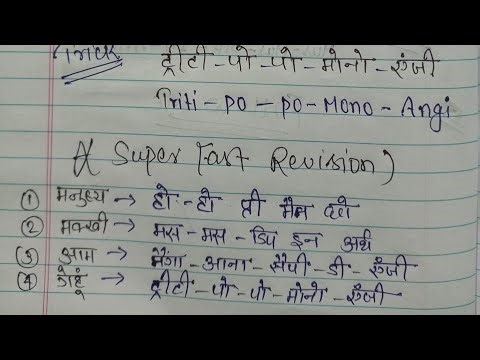 ट्रीटी-पो-पो-मोनो-एंजी
Triti-po-po-Mono-Angi
A Super Fast Revision)
① मनुष्य → हो-हो प्री मैम दो
② मक्खी → मस-मस-डिप इन अर्थ
③ आम → मैंगा-आना-सैपी-डी-एंजी
④ गेहूं → ट्रीटी-पो-पो-मोनो-एंजी